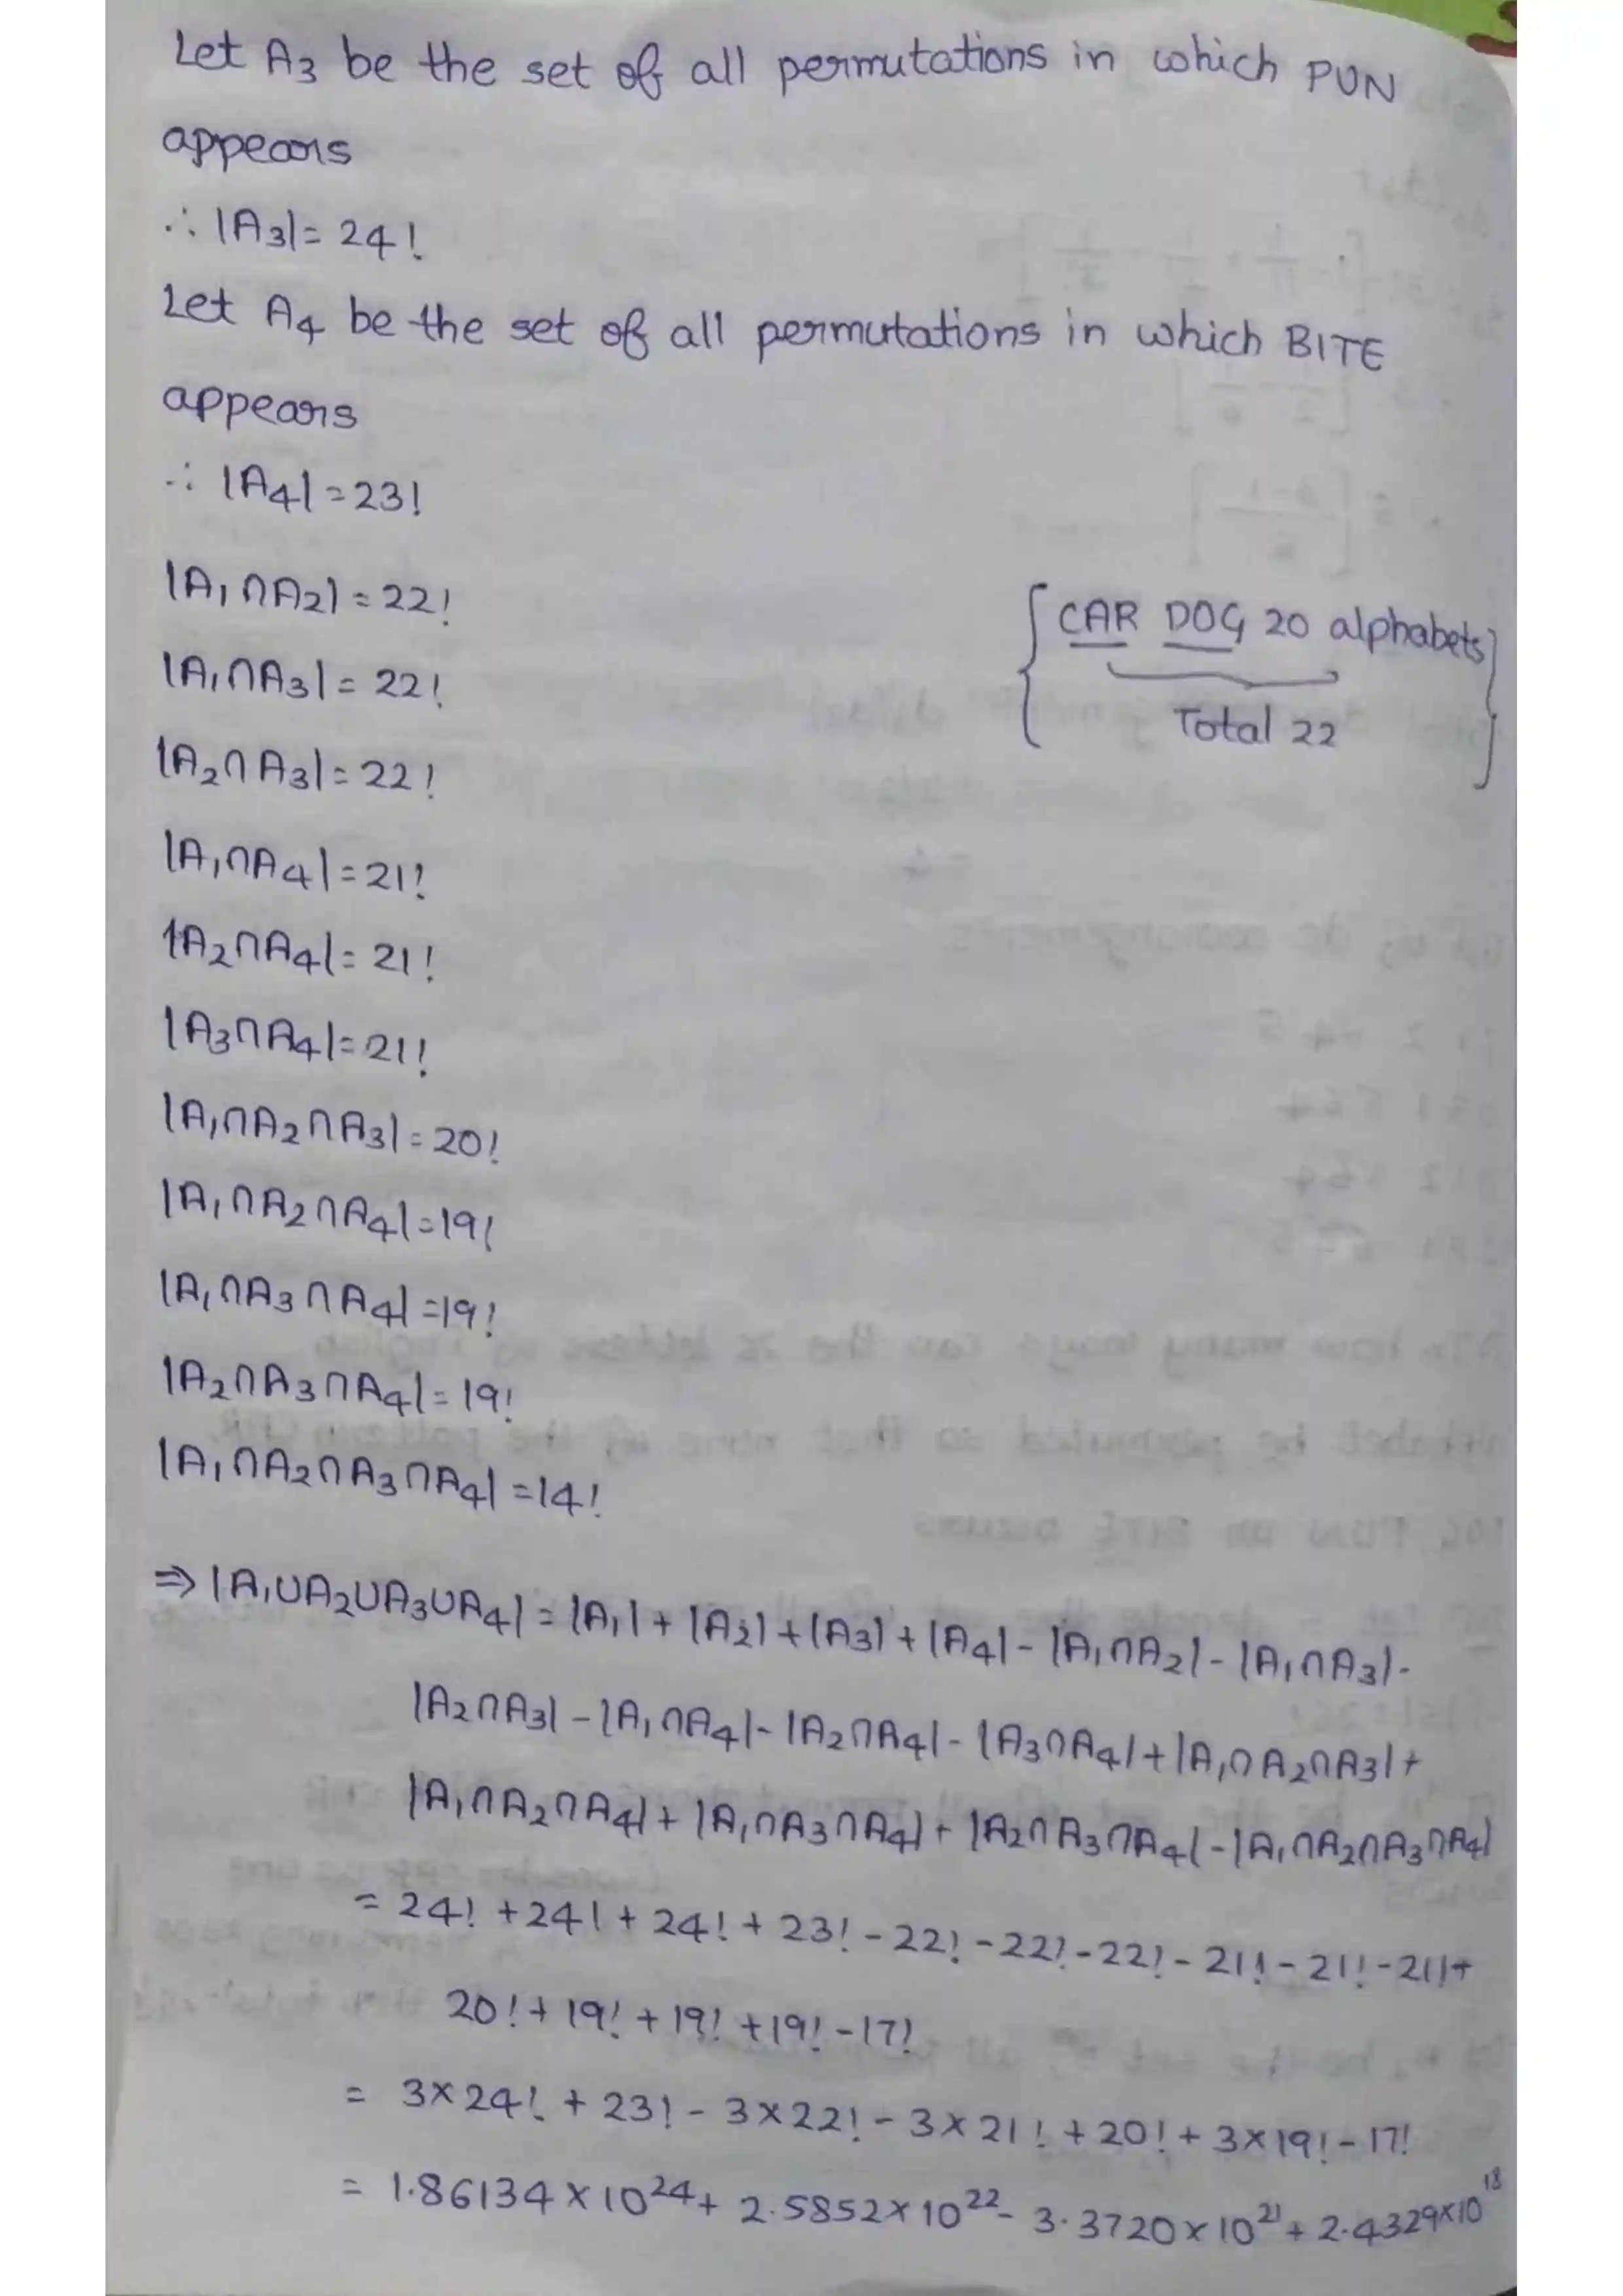 Let A3 be the set of all permutations in which PUN
appears
∴ |A3| = 24!
Let A4 be the set of all permutations in which BITE
appears
∴ |A4| = 23!
|A1∩A2| = 22!
{ CAR DOG 20 alphabets }
Total 22
|A1∩A3| = 22!
|A2∩A3| = 22!
|A1∩A4| = 21!
|A2∩A4| = 21!
|A3∩A4| = 21!
|A1∩A2∩A3| = 20!
|A1∩A2∩A4| = 19!
|A1∩A3∩A4| = 19!
|A2∩A3∩A4| = 19!
|A1∩A2∩A3∩A4| = 14!
⇒ |A1∪A2∪A3∪A4| = |A1| + |A2| + |A3| + |A4| - |A1∩A2| - |A1∩A3| -
|A2∩A3| - |A1∩A4| - |A2∩A4| - |A3∩A4| + |A1∩A2∩A3| +
|A1∩A2∩A4| + |A1∩A3∩A4| + |A2∩A3∩A4| - |A1∩A2∩A3∩A4|
= 24! + 24! + 24! + 23! - 22! - 22! - 22! - 21! - 21! - 21! +
20! + 19! + 19! + 19! - 17!
= 3×24! + 23! - 3×22! - 3×21! + 20! + 3×19! - 17!
= 1.86134×10^24 + 2.5852×10^22 - 3.3720×10^21 + 2.4329×10^18